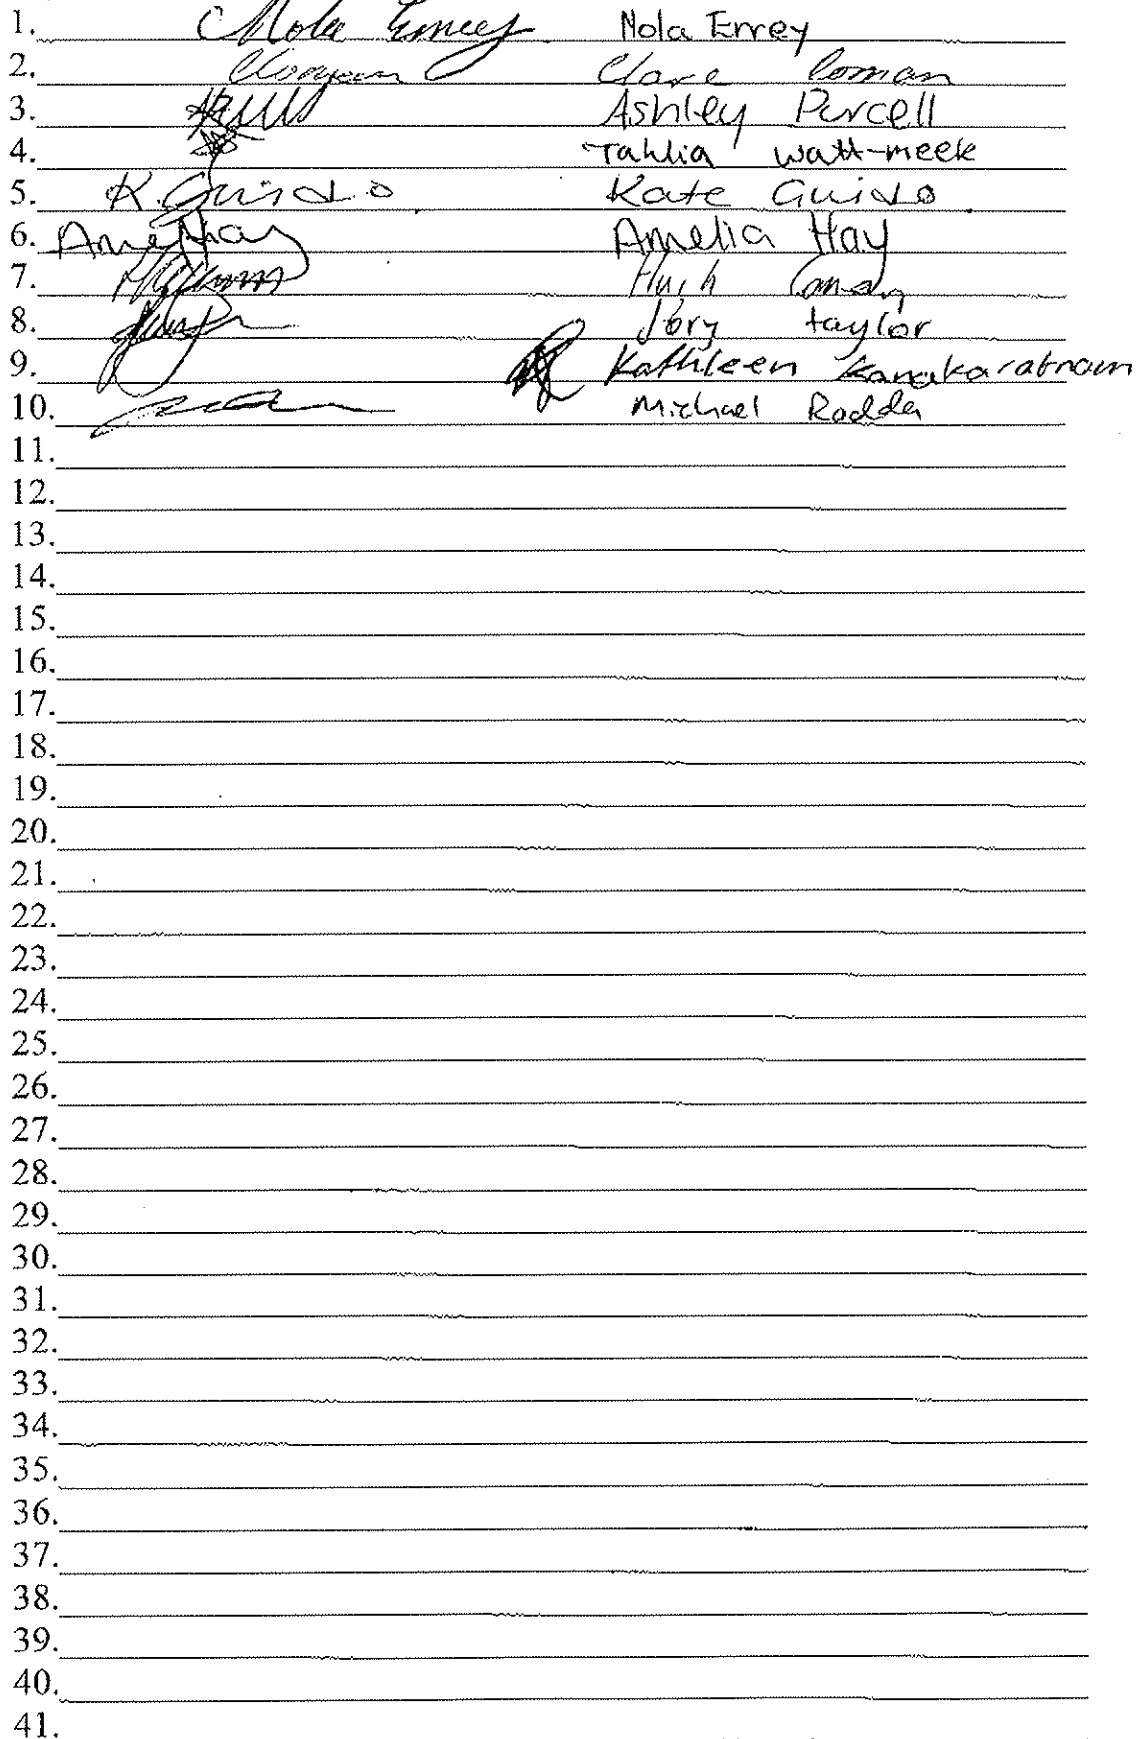 1. Nola Errey Nola Errey
2. Clare Coman
3. Ashley Purcell
4. Tahlia Watt-meek
5. K. Guido Kate Guido
6. Amelia Hay
7. Hugh Coman
8. Jory taylor
9. Kathleen Kanakaratnam
10. Michael Rodda
11.
12.
13.
14.
15.
16.
17.
18.
19.
20.
21.
22.
23.
24.
25.
26.
27.
28.
29.
30.
31.
32.
33.
34.
35.
36.
37.
38.
39.
40.
41.